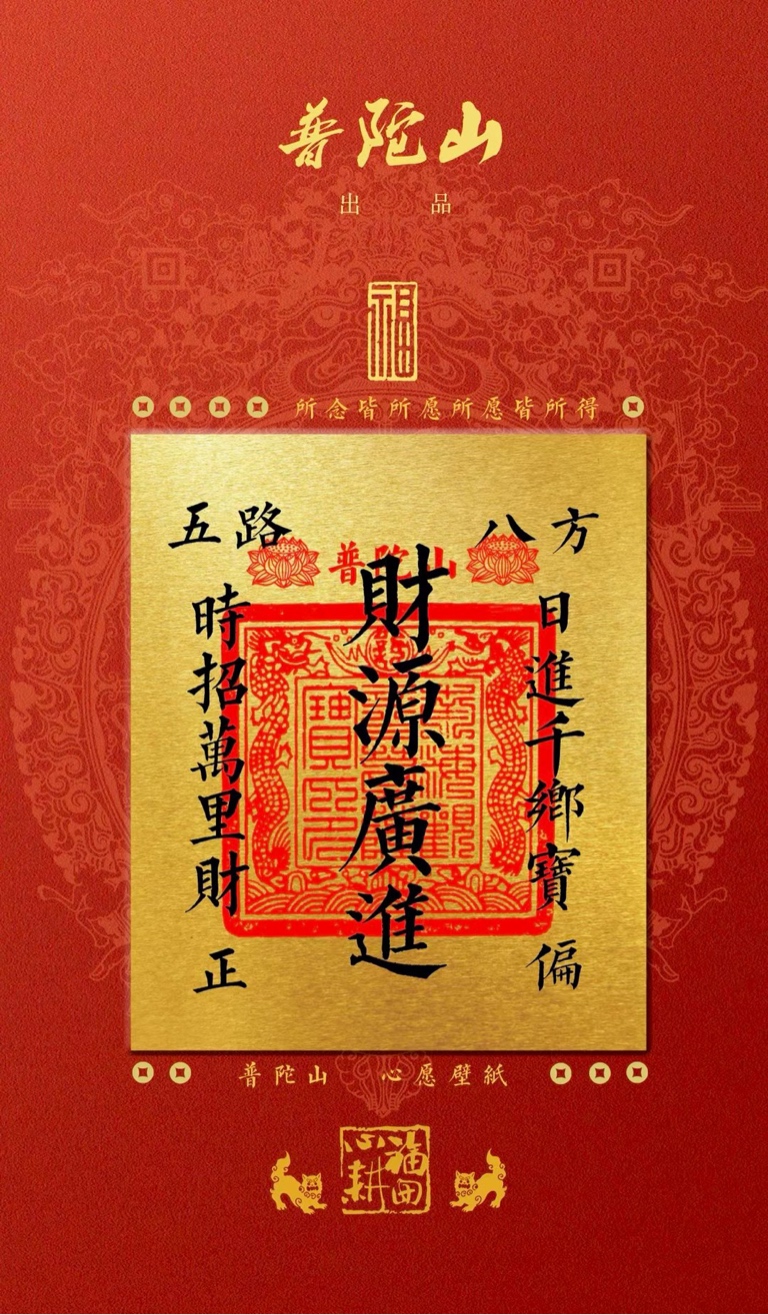 普陀山
出品
福
所念皆所愿所愿皆所得
五路 八方
普陀山
財源廣進
日進千鄉寶
時招萬里財
偏
正
普陀山 心愿壁紙
福田
心耕